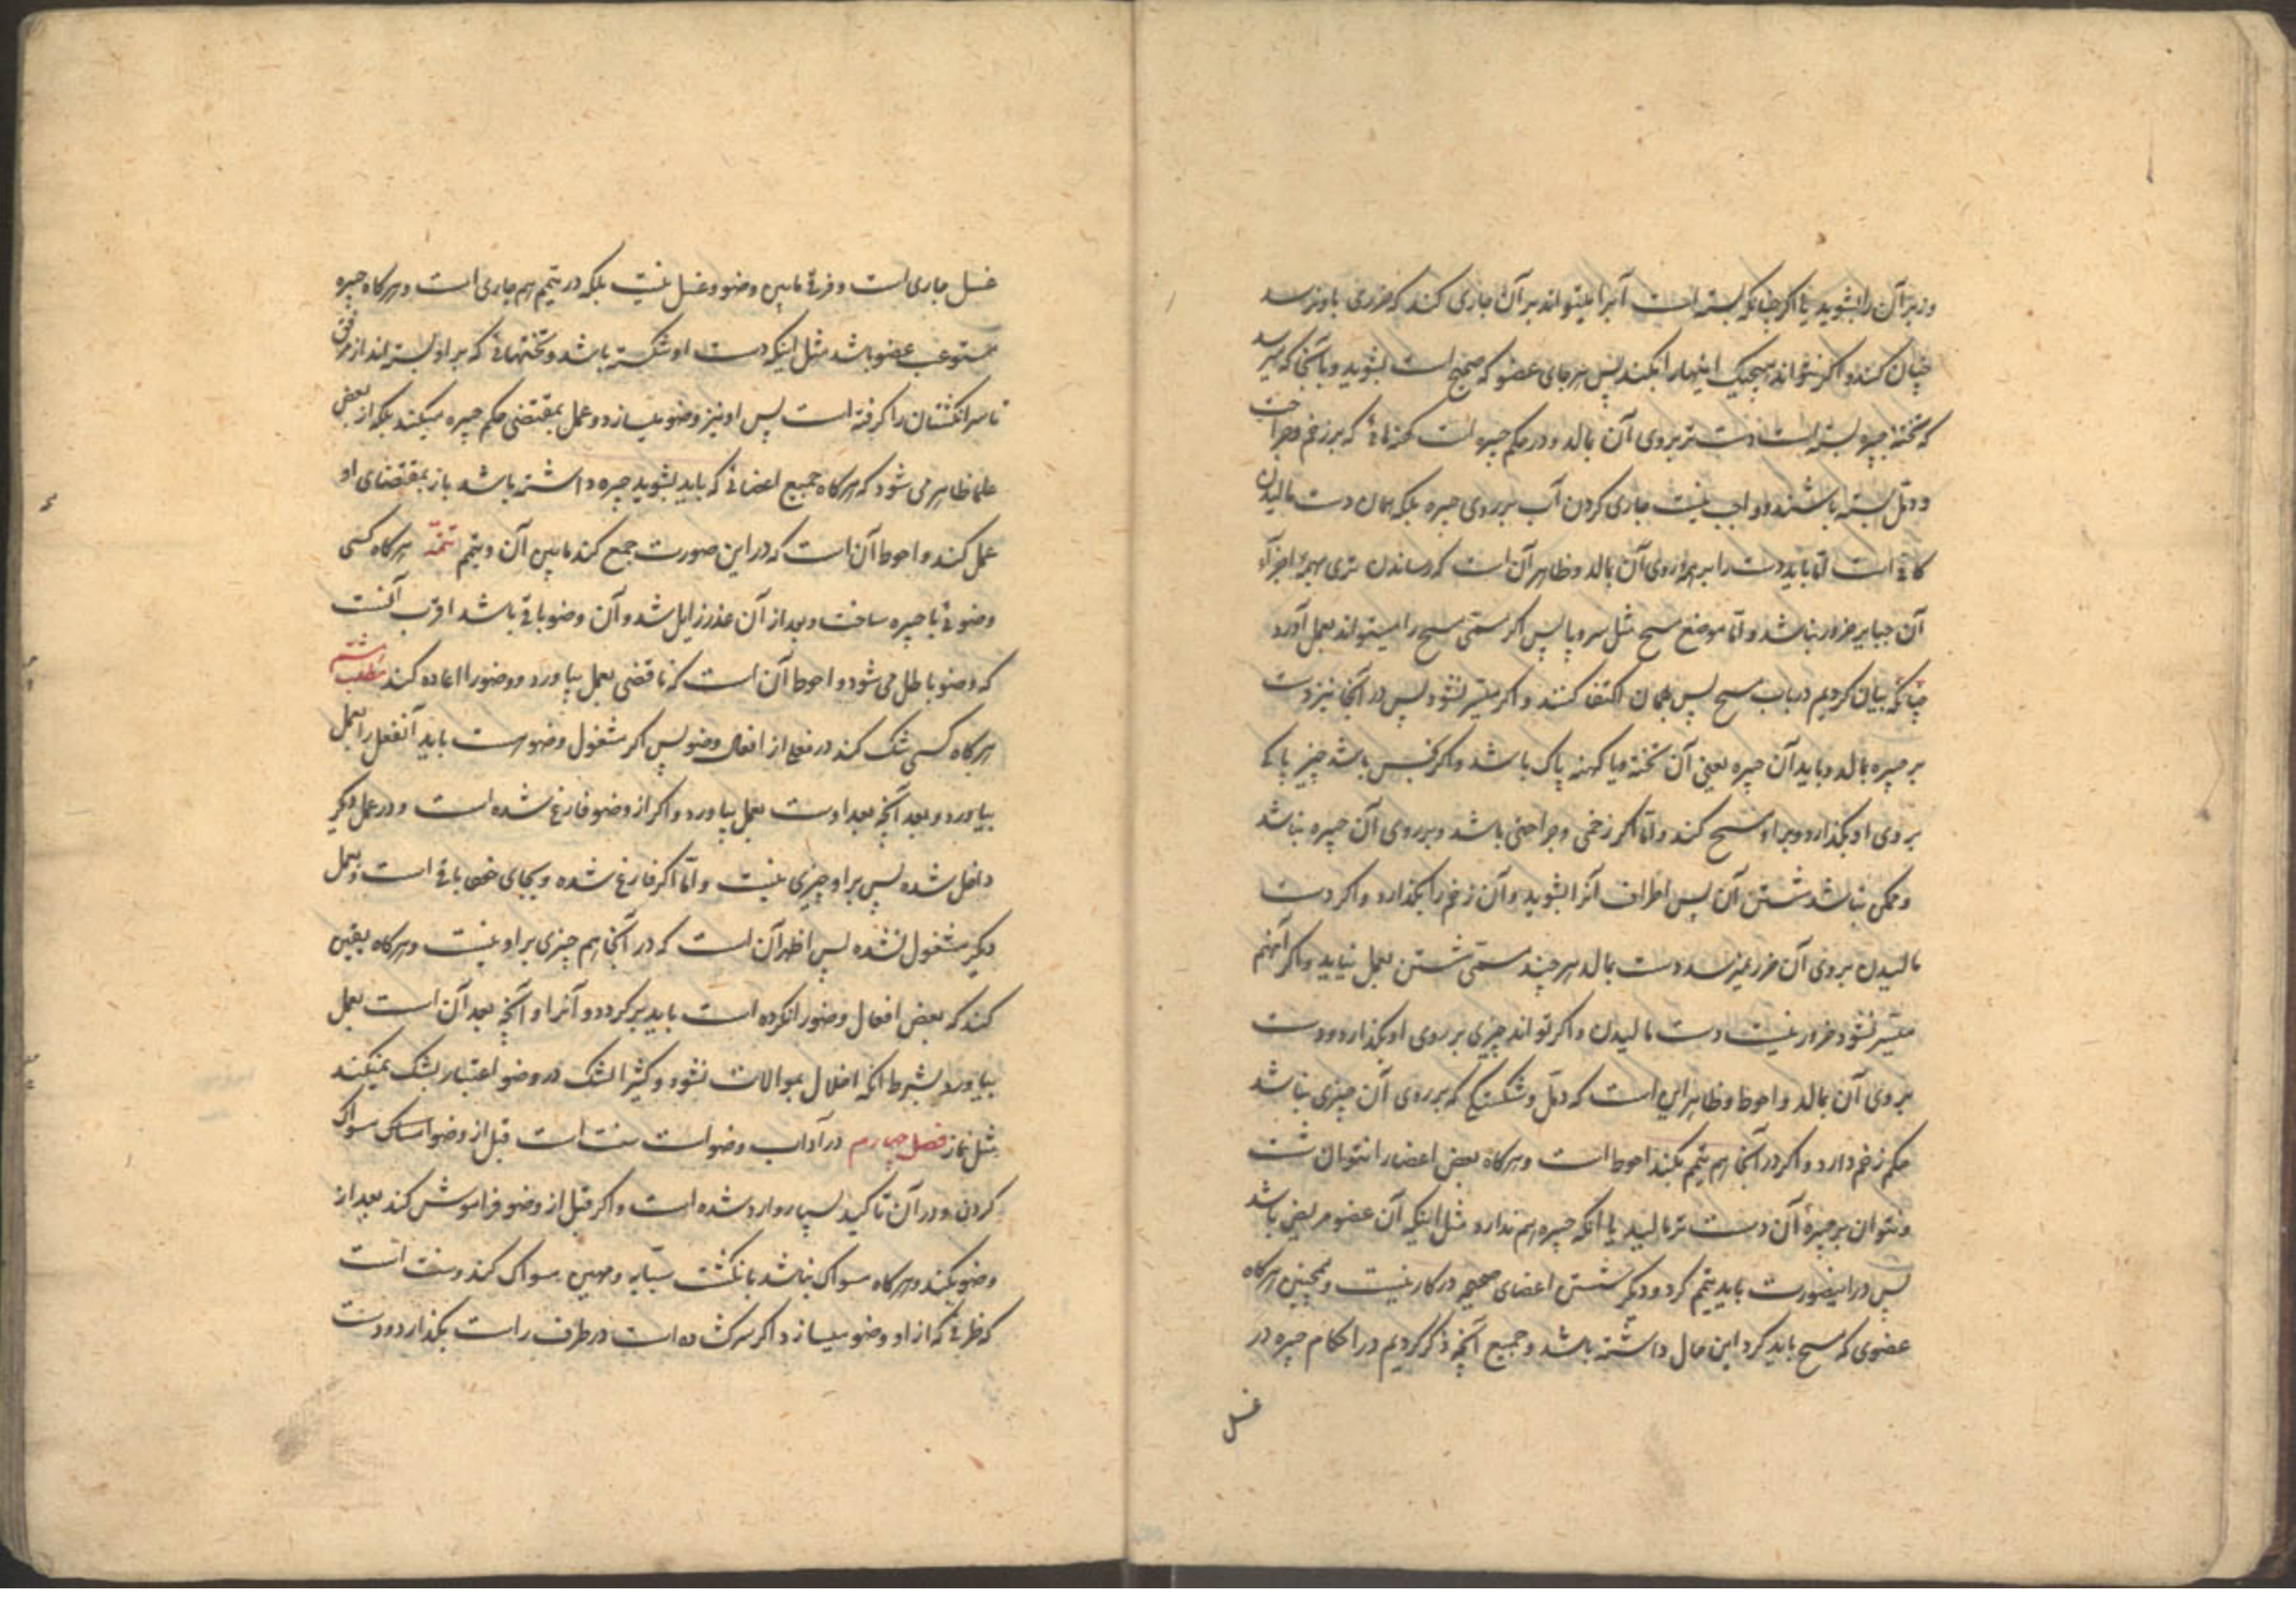 و زیر آن را بشوید یا اگر چنانکه بسته است آب را میتواند بر آن جاری کند که ضرری باو نرسد
چنان کند و اگر نتواند هیچیک اینها را بکند پس هر جای عضو که صحیح است بشوید و بآنجا که میرسد
که تخته جبیره بسته است دست تر بروی آن بمالد و در حکم جبیره است کهنه‌ها که بر زخم و جراحت
و دمّل بسته باشند و واجب نیست جاری کردن آب بر روی جبیره بلکه همان دست مالیدن
کافی است امّا باید دست را بر همه روی آن بمالد و ظاهر آن است که رساندن تری بهمۀ اجزاء
آن جبایر ضرور نباشد و امّا موضع مسح مثل سر و پا پس اگر مسمّی مسح را میتواند بعمل آورد
چنانکه بیان کردیم در باب مسح پس بهمان اکتفا کنند و اگر میسّر نشود پس در آنجا نیز دست
بر جبیره بمالد و باید آن جبیره یعنی آن تخته و یا کهنه پاک باشد و اگر نجس باشد چیز پاکی
بروی او بگذارد و بر او مسح کند و امّا اگر زخمی و جراحتی باشد و بر روی آن جبیره نباشد
و ممکن نباشد شستن آن پس اطراف آنرا بشوید و آن زخم را بگذارد و اگر دست
مالیدن بروی آن ضرر نمیرسد دست بمالد هر چند مسمّی شستن بعمل نیاید و اگر آنهم
میسّر نشود ضرور نیست دست مالیدن و اگر تواند چیزی بر روی او بگذارد و دست
بروی آن بمالد و احوط و ظاهر این است که دمّل و شکستگی که بر روی آن چیزی نباشد
حکم زخم دارد و اگر در آنجا هم تیمم بکند احوط است و هر گاه بعض اعضا را نتوان شست
و نتوان بر جبیرۀ آن دست تر مالید یا آنکه جبیره هم ندارد مثل اینکه آن عضو مریض باشد
پس در اینصورت باید تیمم کرد و دیگر شستن اعضای صحیح در کار نیست و همچنین هر گاه
عضوی که مسح باید کرد این حال داشته باشد و جمیع آنچه ذکر کردیم در احکام جبیره در
غسل
غسل جاری است و فرقی مابین وضو و غسل نیست بلکه در تیمم هم جاری است و هر گاه جبیره
مستوعب عضو باشد مثل اینکه دست او شکسته باشد و تختهائی که بر او بسته‌اند از مرفق
تا سر انگشتان را گرفته است پس او نیز وضو میسازد و عمل بمقتضی حکم جبیره میکند بلکه از بعض
علما ظاهر می‌شود که هر گاه جمیع اعضائی که باید بشوید جبیره داشته باشد باز بمقتضای او
عمل کند و احوط آن است که در این صورت جمع کند مابین آن و تیمم تتمّه هر گاه کسی
وضوئی با جبیره ساخت و بعد از آن عذر زایل شد و آن وضو باقی باشد اقرب آنست
که وضو باطل می‌شود و احوط آن است که ناقضی بعمل بیاورد و وضو را اعاده کند مطلب ششم
هر گاه کسی شک کند در فعلی از افعال وضو پس اگر مشغول وضو است باید آنفعل را بعمل
بیاورد و بعد آنچه بعد اوست بعمل بیاورد و اگر از وضو فارغ شده است و در عمل دیگر
داخل شده پس بر او چیزی نیست و امّا اگر فارغ شده و بجای خود باقی است و بعمل
دیگر مشغول نشده پس اظهر آن است که در آنجا هم چیزی بر او نیست و هر گاه یقین
کند که بعض افعال وضو را نکرده است باید بر گردد و آنرا و آنچه بعد آن است بعمل
بیاورد بشرط آنکه اخلال بموالات نشود و کثیر الشک در وضو اعتبار بشک نمیکند
مثل نماز فصل چهارم در آداب وضو است سنت است قبل از وضو امساک سواک
کردن و در آن تاکید بسیار وارد شده است و اگر قبل از وضو فراموش کند بعد از
وضو بکند و هر گاه سواک نباشد بانگشت سبّابه و مهین سواک کند و سنت است
که ظرفی که از او وضو میسازد اگر سرگشاده است در طرف راست بگذارد و دست